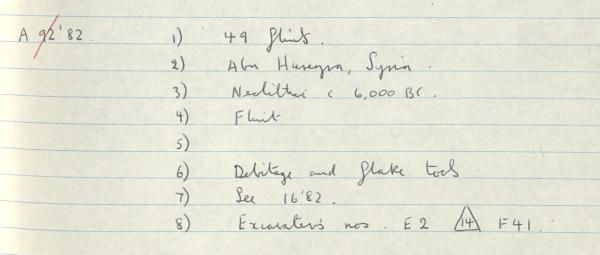 A 92'82. 1) 49 flints.
2) Abu Hureyra, Syria.
3) Neolithic c 6,000 BC.
4) Flint
5)
6) Debitage and flake tools
7) See 16'82.
8) Excavator's nos. E2 14 F41.